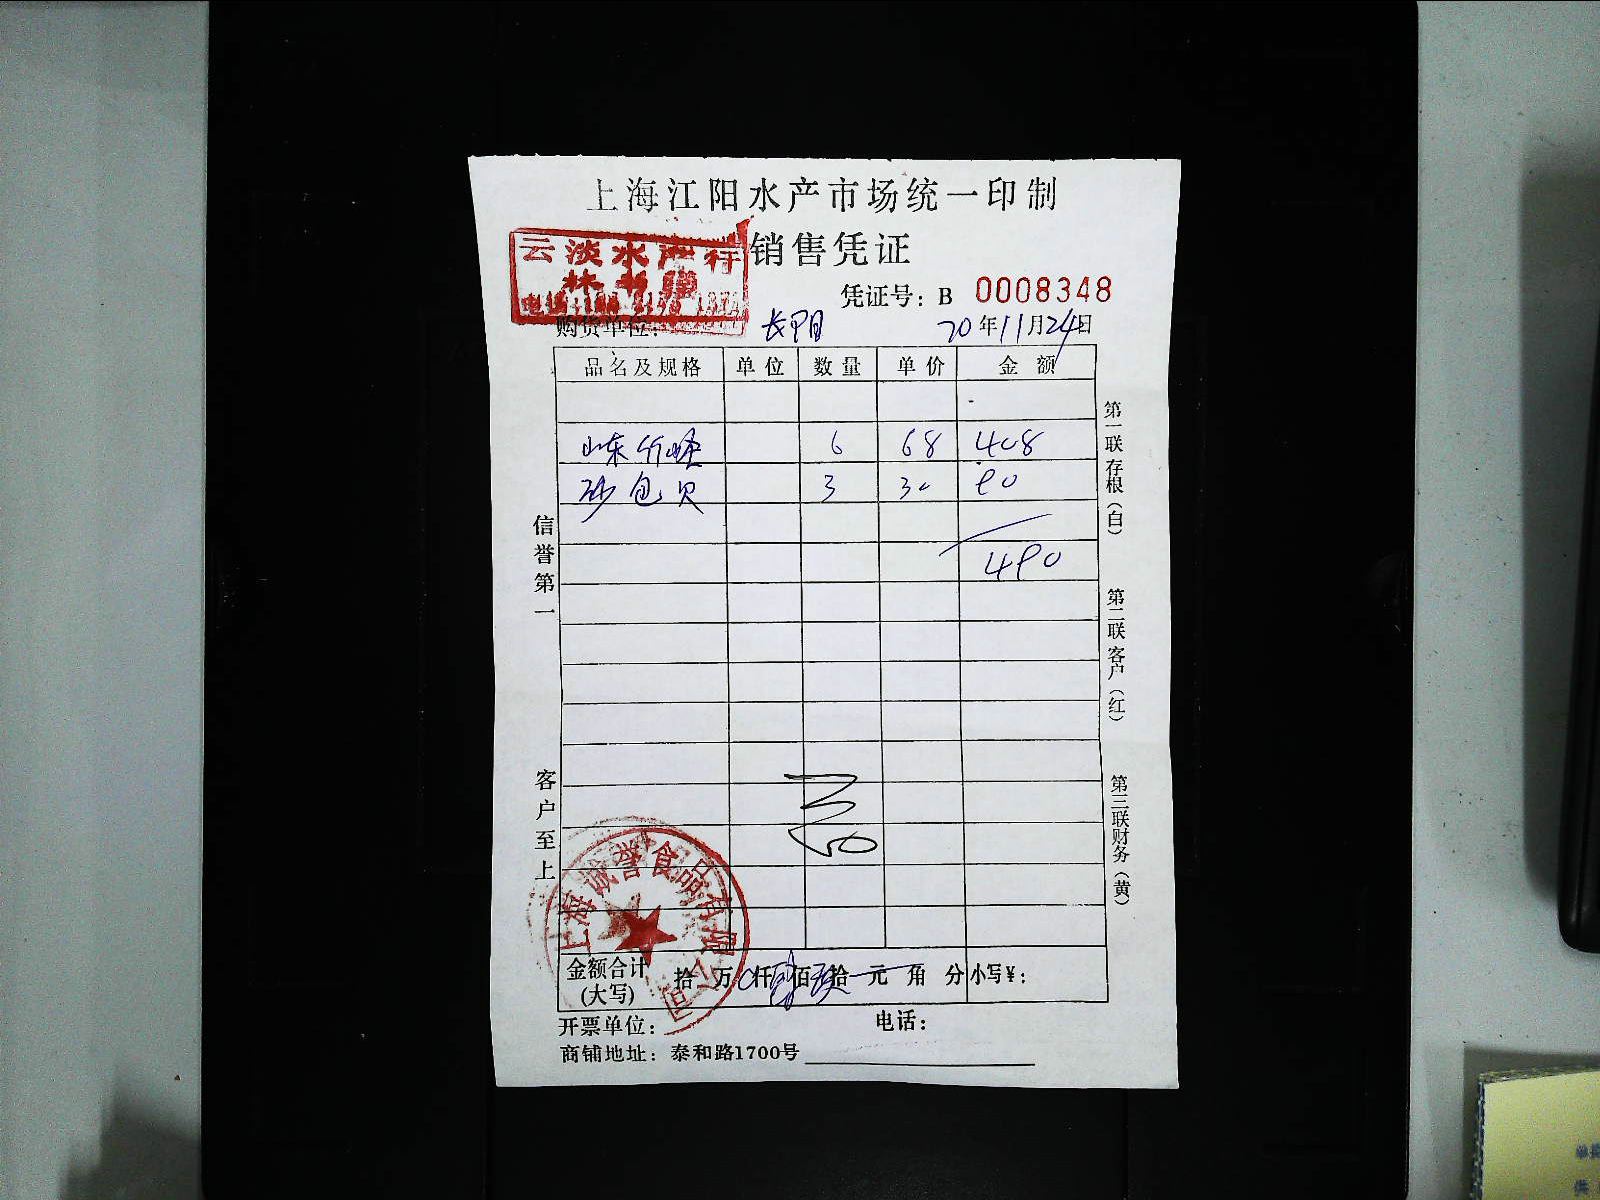 上海江阳水产市场统一印制
销售凭证
云淡水产祥
凭证号：B 0008348
购货单位： 长阳 20年11月24日
品名及规格 单位 数量 单价 金额
山东竹蛏 6 68 408
砂包贝 3 30 90
490
信誉第一
客户至上
第一联存根（白）
第二联客户（红）
第三联财务（黄）
上海诚誉食品有限公司
金额合计(大写) 拾 万 仟 肆 佰 玖 拾 元 角 分 小写¥：
开票单位： 电话：
商铺地址：泰和路1700号